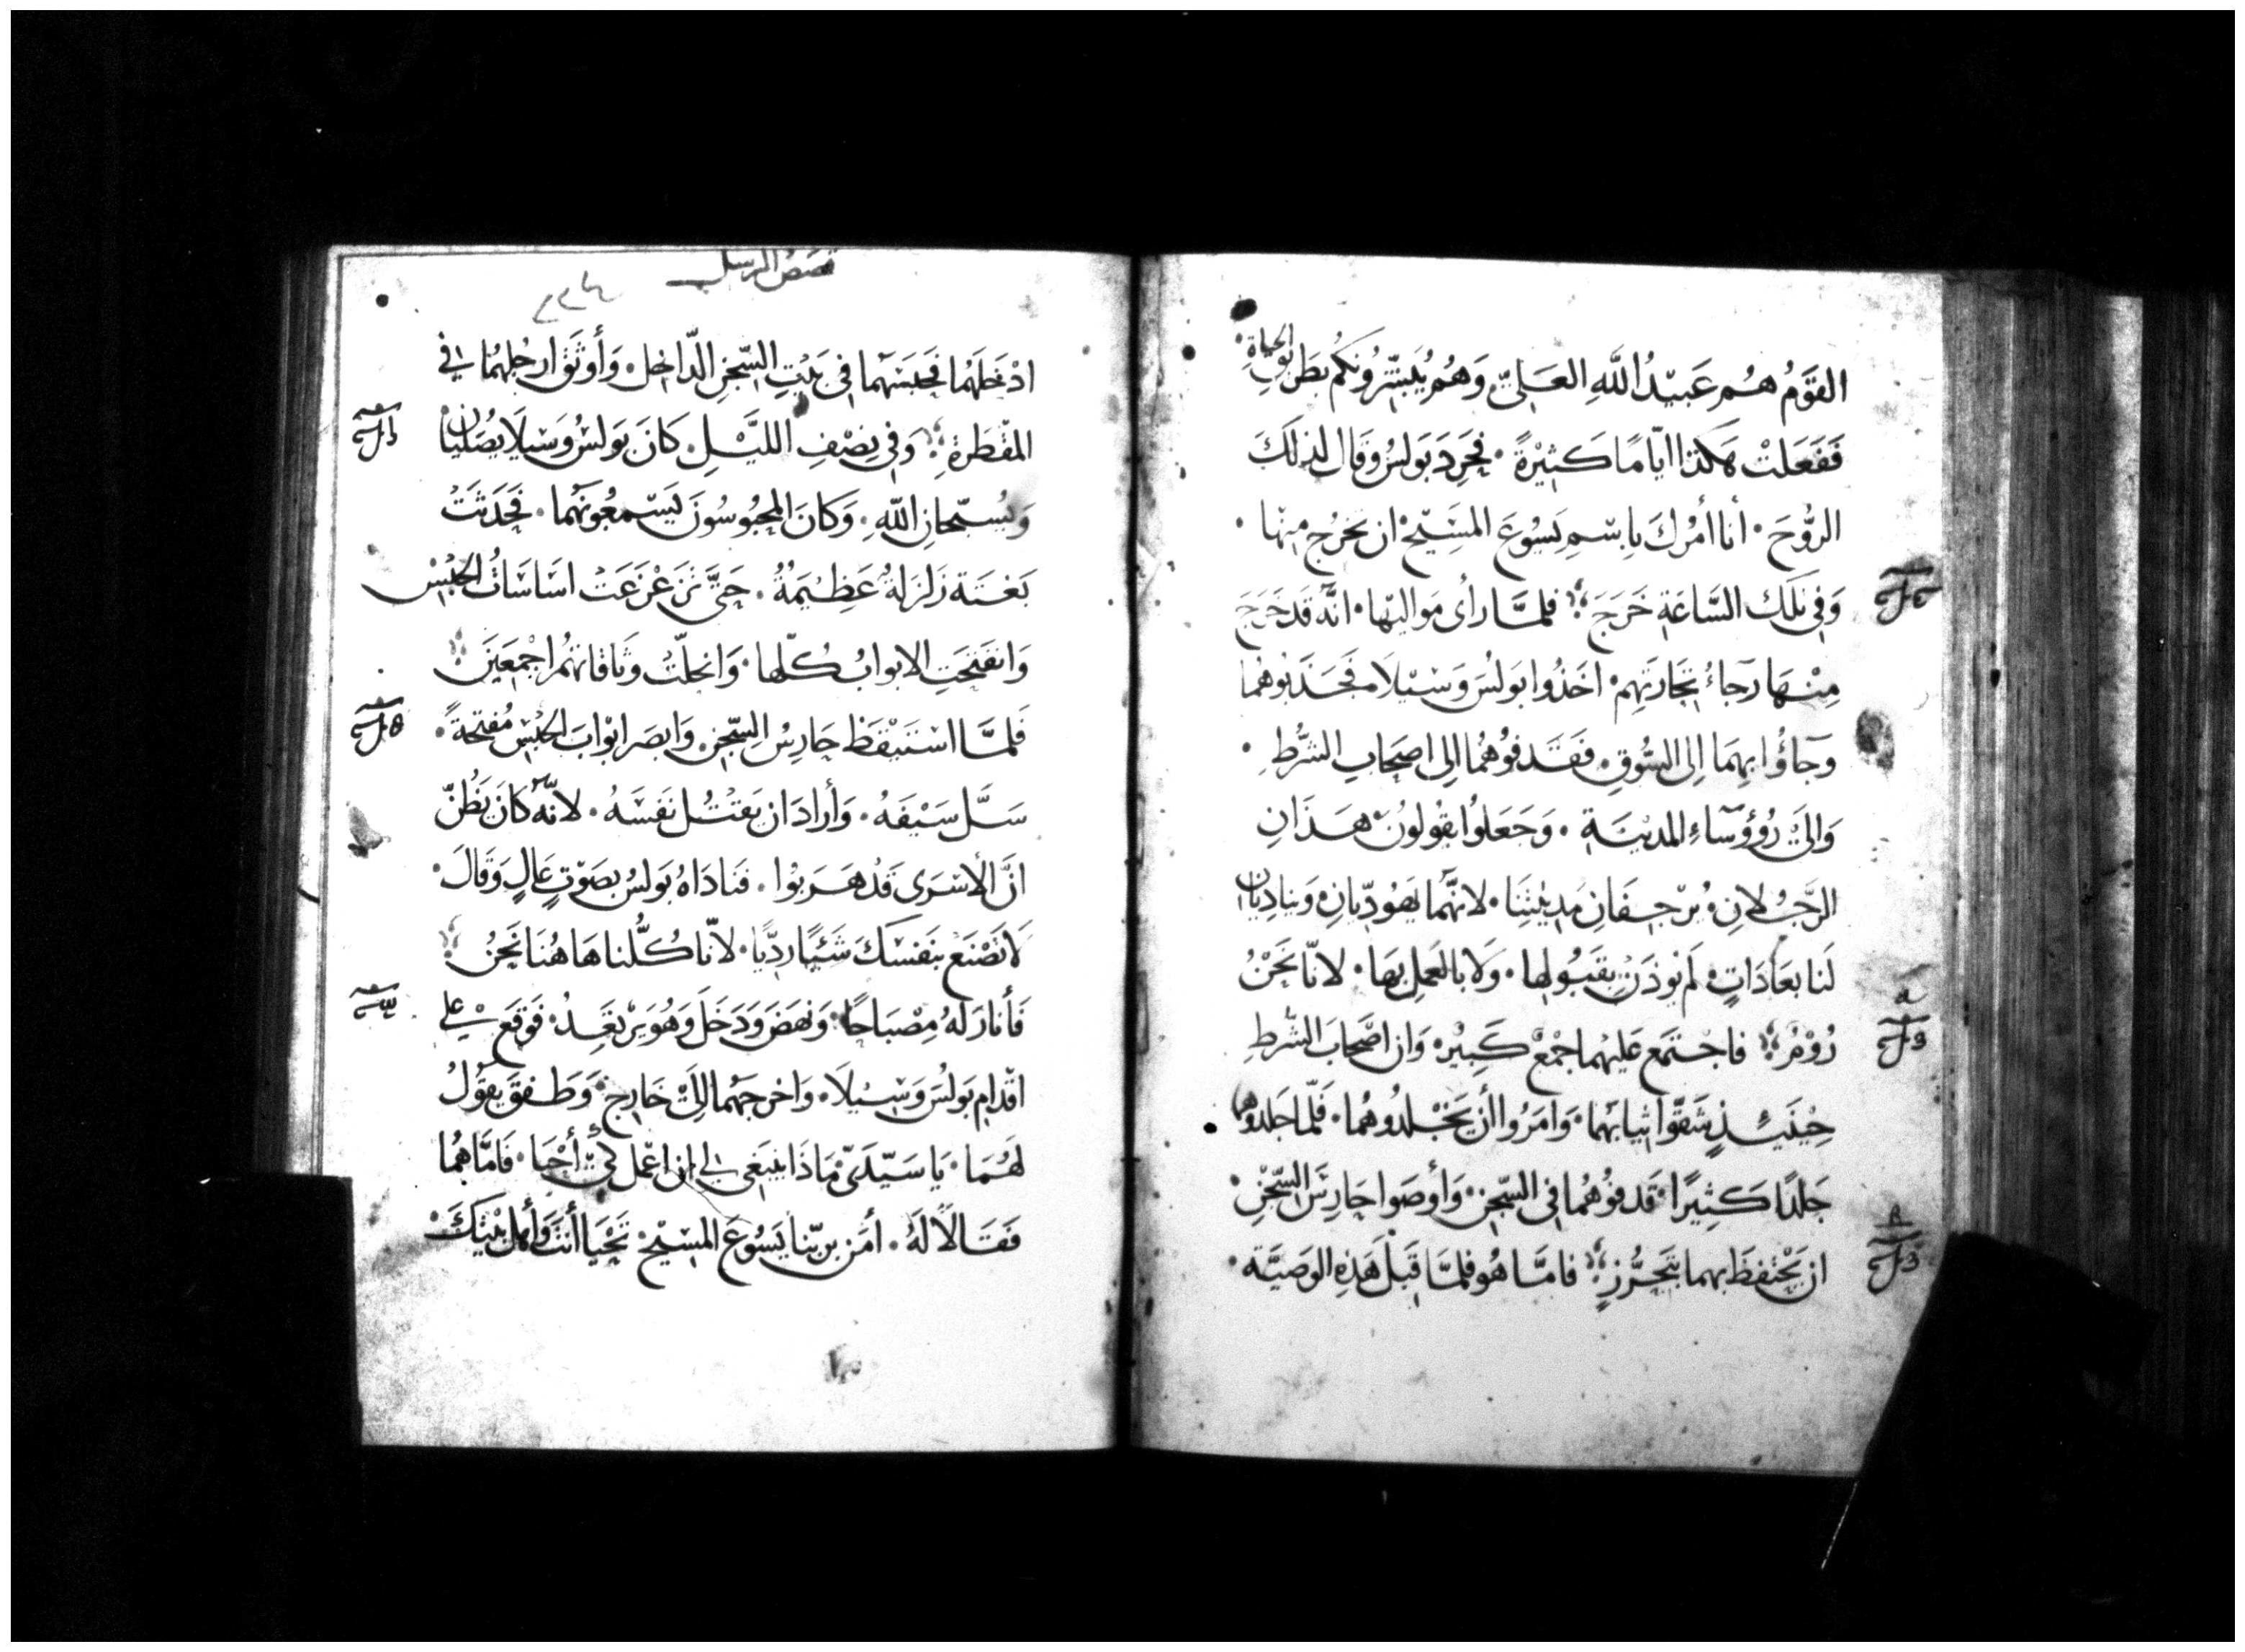 القَوْمُ هُم عَبِيدُ اللَّهِ العَلِيّ وَهُم يُبَشِّرُونَكُم بِطَرِيقِ الحياةِ
فَفَعَلَتْ هَكَذا ايّامًا كَثِيْرَةً · فحَرِدَ بَولسُ وقَال لذلكَ
الرُّوحَ · أنا أمُرُكَ باِسْمِ يَسُوعَ المَسِيْحْ ان تخرُج مِنْها ·
وَفي تلكَ السَّاعَةِ خَرَجَ فلمَّا رأى مَواليها · انّه قد خَرَجَ
مِنْهَا رَجاءُ تِجَارَتِهِم · اخَذُوا بَولُسَ وَسِيْلَا · فجَذَبُوهُما
وَجآؤُا بِهِمَا الِى السُّوقِ · فقَدفُوهُما الِى اصحَابِ الشُّرَطِ ·
وَالىَ رُؤوسَاءِ المديْنَةِ · وَجَعَلوُا يقُولونَ هَذَانِ
الرَّجُلانِ · يُرْجِفَانِ مَدِينتِنَا · لانّهُما يَهُودِيّانِ · وَيناديَان
لَنا بعَادَاتٍ لم نُوذَنْ بقَبُولِها · وَلَا بالعَملِ بهَا · لانّا نَحْنُ
رُوْمُ فاجْتمَع عَليهما جمْعٌ كَبِيْر · وَان اصْحابَ الشُرَطِ
حِيْنَئِذٍ شقّوا ثيابهُما · وَامَرُوا أن يَجْلدُوهُما · فَلمّا جَلدُوهما
جَلدًا كَثِيرًا · قَدفوُهُما في السّجنِ · وَأوصَوا حَارِسَ السّجْنِ ·
ان يَحْتفِظَ بهما بتَحَرُّزٍ فامَّا هُو فلمَّا قَبلَ هَذِه الوَصِيَّة ·
قصَصُ الرسل
٢٢٤
ادْخَلَهُما فحَبسَهُما في بَيْتِ السّجْنِ الدّاخِل · وَأوثَقَ ارجُلهُمَا في
المقْطَرةِ وَفي نِصْفِ الليْلِ · كَانَ بَولسُ وَسِيْلَا يصُلّيَان
وَيُسبّحانِ اللّهِ · وَكانَ المحْبُوسُونَ يَسْمعُونهُما · فحَدَثَتْ
بَغتَة زَلزَلةُ عَظِيْمَةُ · حَتَّى تَزَعْزَعَتْ اسَاسَاتُ الحَبْسْ
وَانفَتَحَتِ الابوابُ كُلّها · وَانحَلّتْ وثَاقاتهُم اجْمَعِيَن
فَلمَّا اسْتَيْقَظ حَارِسُ السّجْنِ · وَابصَر ابْوابَ الحَبْسِ مُفتحةً ·
سَلَّ سَيْفَهُ · وَأرادَ ان يَقتُل نَفسَهُ · لانّهُ كانَ يَظُنّ
انَّ الأسْرَى قَدْ هَرَبوُا · فنَادَاهُ بَولسُ بصَوْتٍ عَالٍ وَقَالَ ·
لَا تَصْنَعِ بنَفسَكَ شَئيًا ردّيًا · لانّا كُلُّنا هَاهُنَا نَحنُ
فَأنارَ لَهُ مِصْبَاحًا · وَنهَضَ وَدَخَلَ وَهُوَ يَرْتعِدُ · فَوَقعَ على
اقْدامِ بَولُسَ وَسِيْلَا · وَاخرجَهُما الىَ خَارِج · وَطَفقَ يقوُلُ
لهُمَا · يَا سَيّدَيَّ مَاذَا ينبَغي لي ان اعْمَل لكَيْ أحْيَا · فَامَّا هُما
فَقَالَا لَهُ · أمَن برَبّنا يَسُوعَ المسيْحِ · تَحْيَا أنتَ وَأهل بيْتِكَ ·